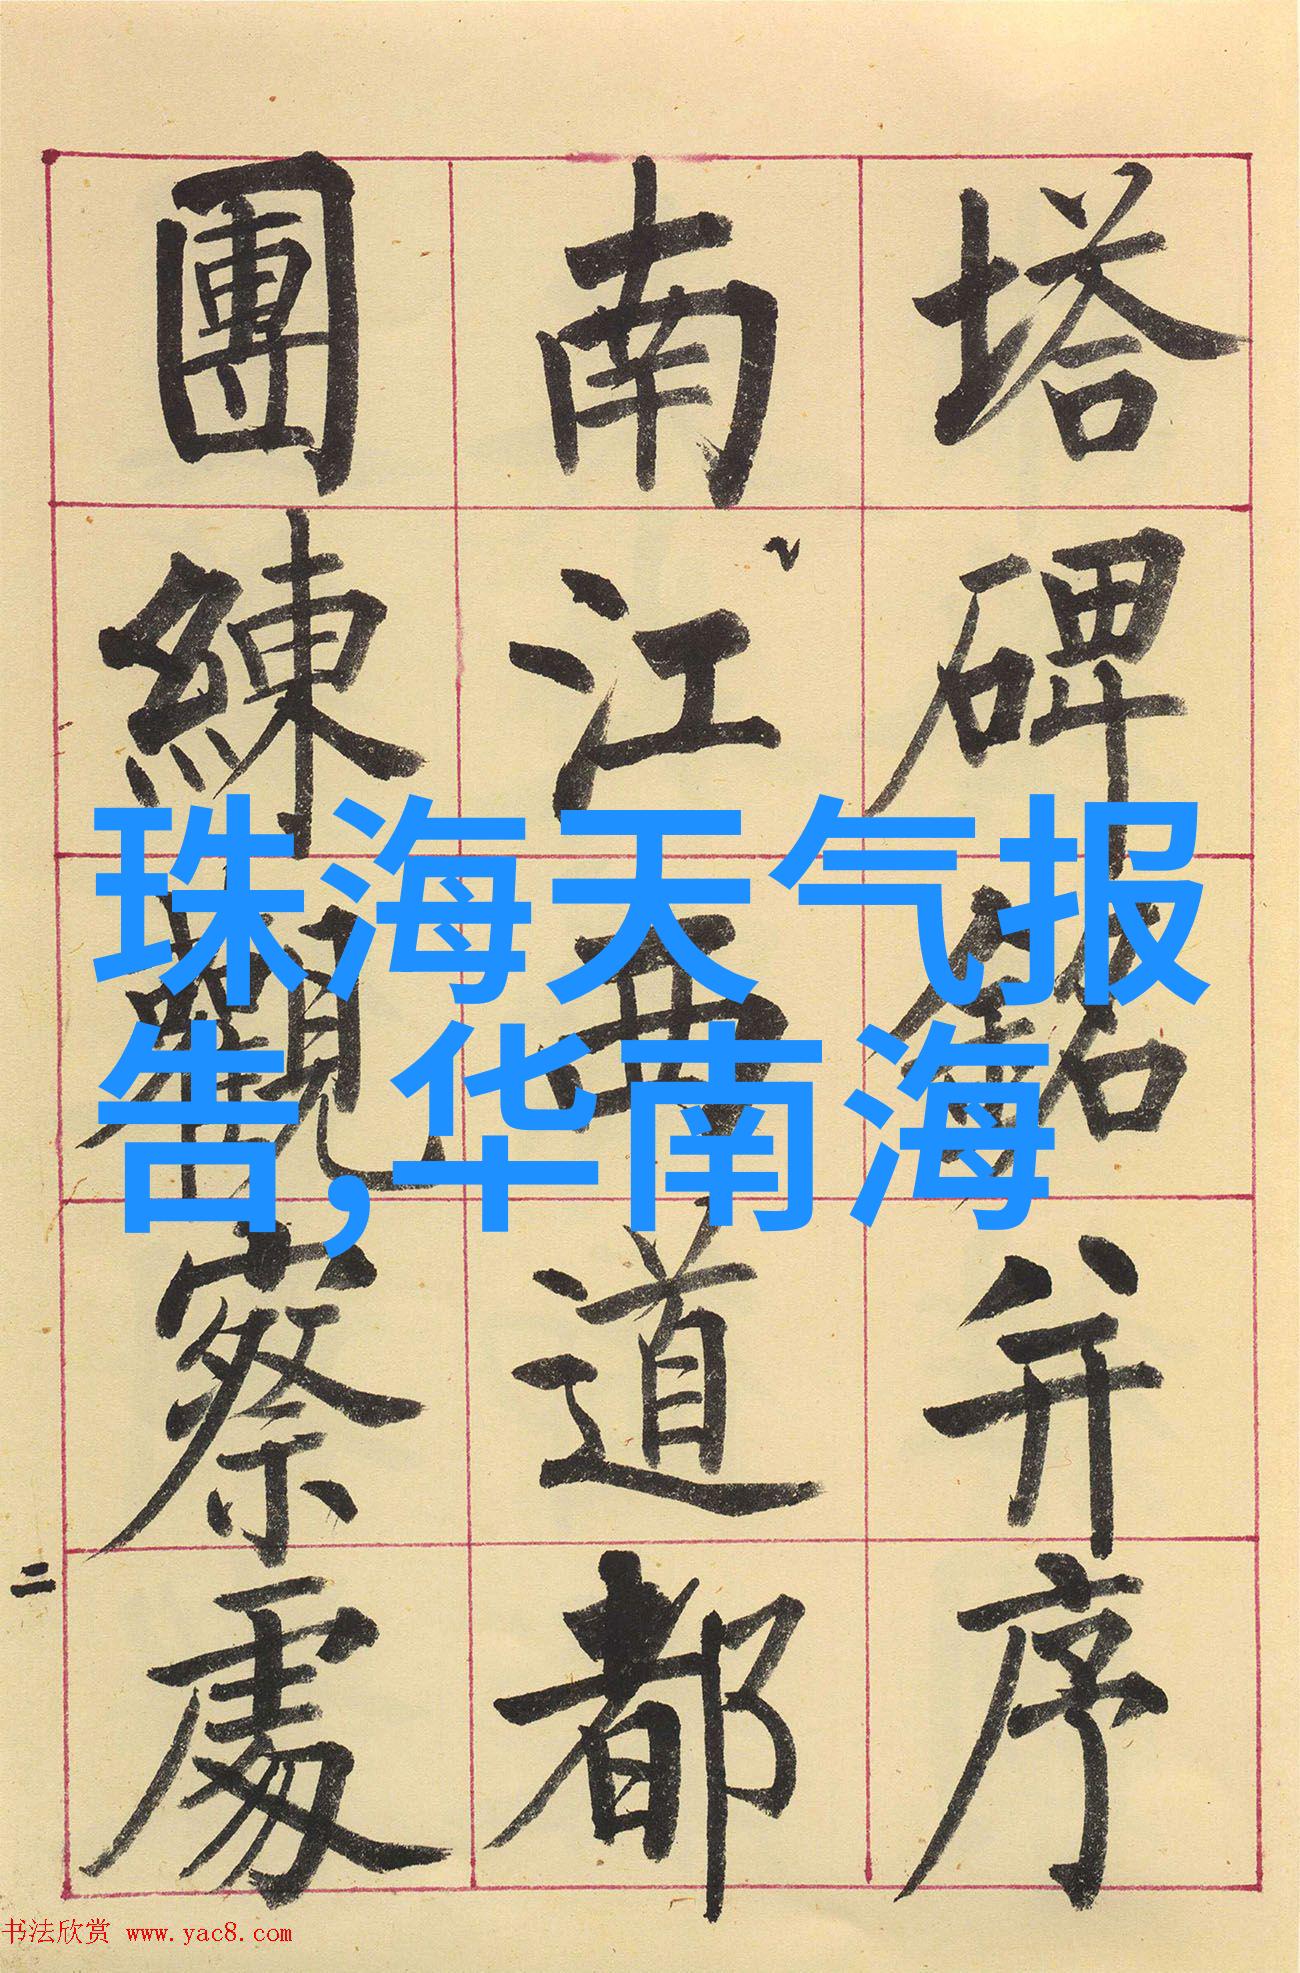 塔碑銘并序
南江西道都
團練觀察處
珠海天气报
告,华南海
二
书法欣赏 www.yac8.com